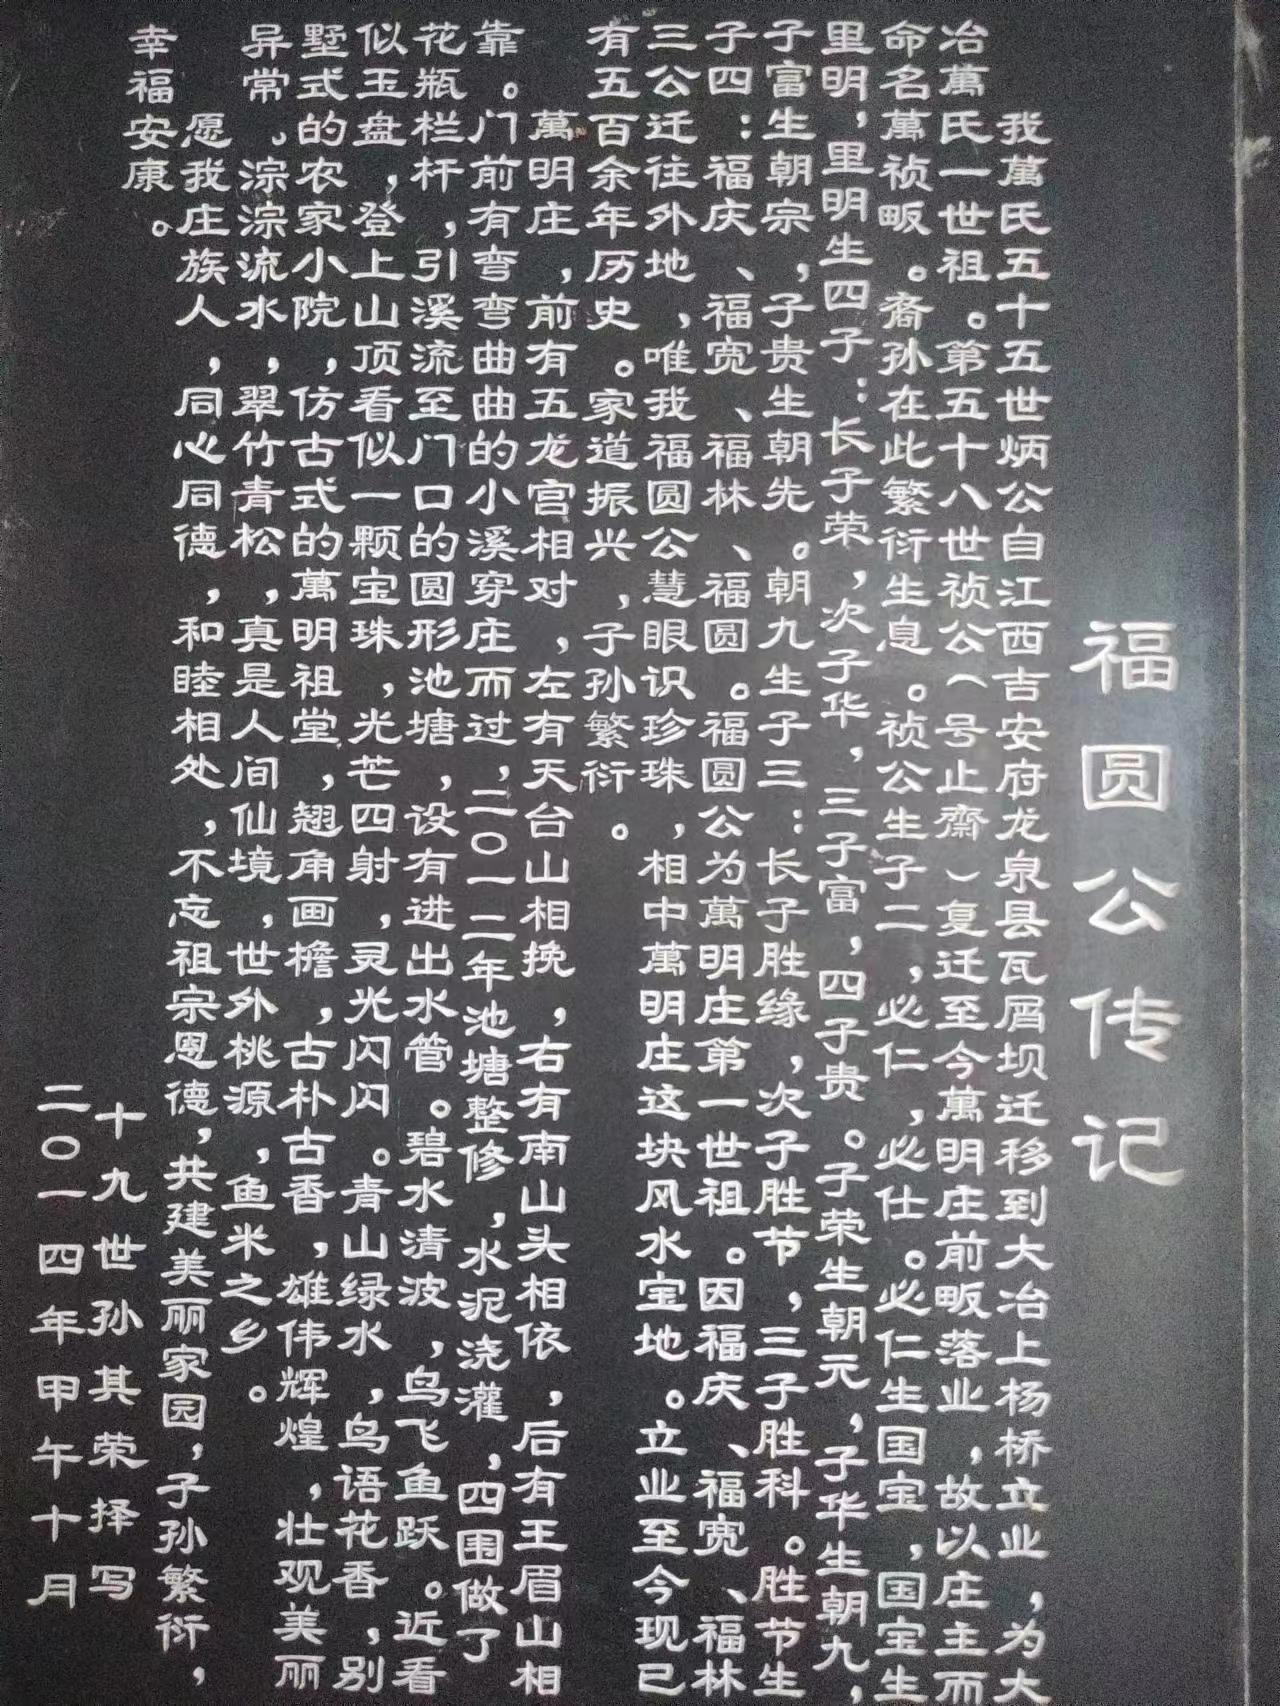 福圆公传记
我萬氏五十五世炳公自江西吉安府龙泉县瓦屑坝迁移到大冶上杨桥立业，为大
冶萬氏一世祖。第五十八世祯公（号止齋）复迁至今萬明庄前畈落业，故以庄主而
命名萬祯畈。裔孙在此繁衍生息。祯公生子二，必仁，必仕。必仁生国宝，国宝生
里明，里明生四子：长子荣，次子华，三子富，四子贵。子荣生朝元，子华生朝九，
子富生朝宗，子贵生朝先。朝九生子三：长子胜缘，次子胜节，三子胜科。胜节生
子四：福庆、福宽、福林、福圆。福圆公为萬明庄第一世祖。因福庆、福宽、福林
三公迁往外地，唯我福圆公慧眼识珍珠，相中萬明庄这块风水宝地。立业至今现已
有五百余年历史。家道振兴，子孙繁衍。
萬明庄，前有五龙宫相对，左有天台山相挽，右有南山头相依，后有王眉山相
靠。门前有弯弯曲曲的小溪穿庄而过，二〇一二年池塘整修，水泥浇灌，四围做了
花瓶栏杆，引溪流至门口的圆形池塘，设有进出水管。碧水清波，鸟飞鱼跃。近看
似玉盘，登上山顶看似一颗宝珠，光芒四射，灵光闪闪。青山绿水，鸟语花香，别
墅式的农家小院，仿古式的萬明祖堂，翘角画檐，古朴古香，雄伟辉煌，壮观美丽
异常。淙淙流水，翠竹青松，真是人间仙境，世外桃源，鱼米之乡。
愿我庄族人，同心同德，和睦相处，不忘祖宗恩德，共建美丽家园，子孙繁衍，
幸福安康。
十九世孙其荣择写
二〇一四年甲午十月